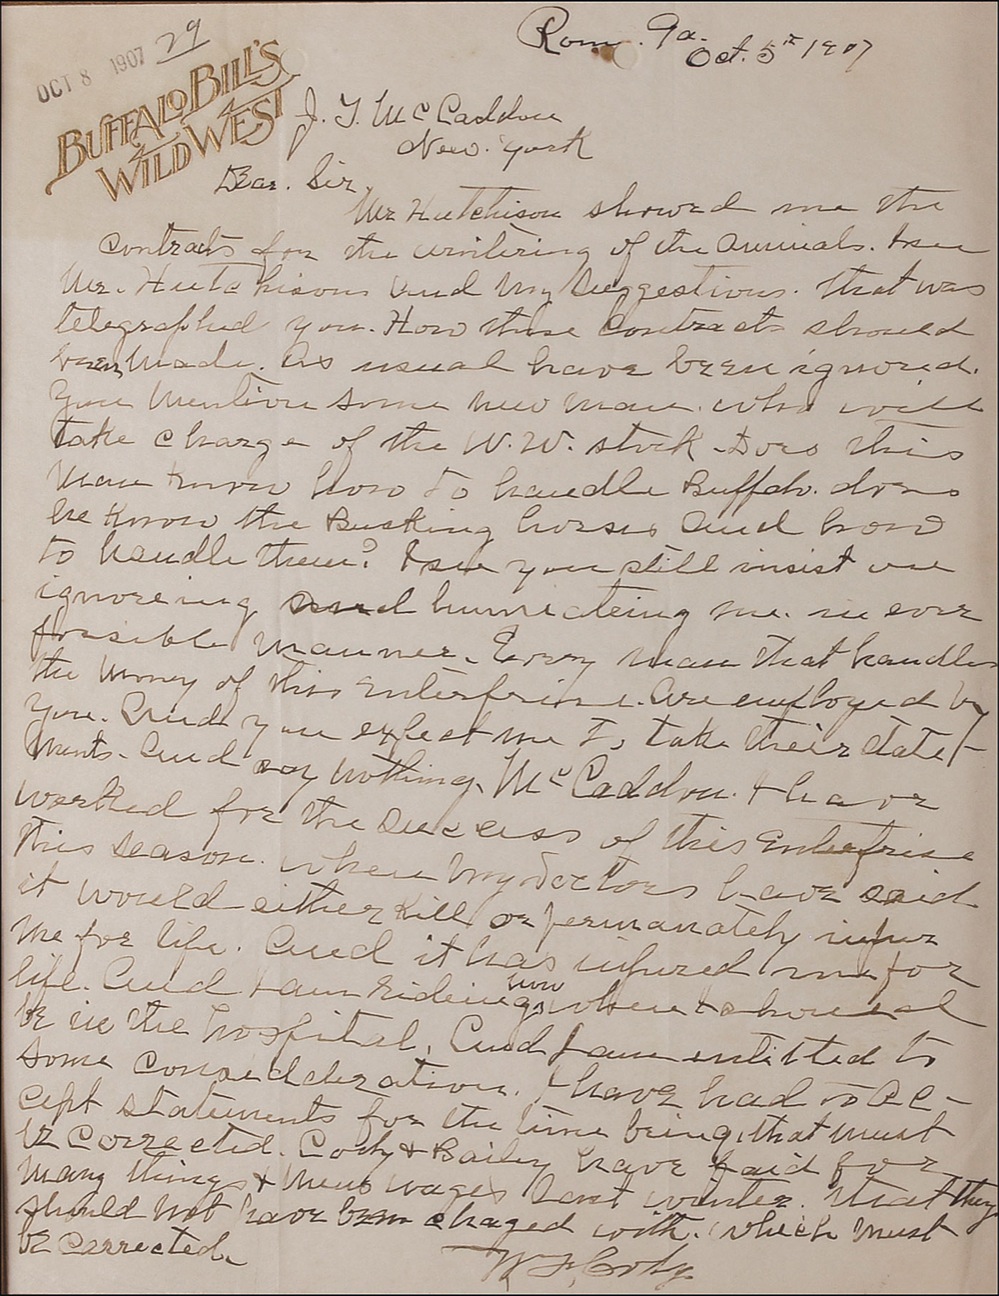 OCT 8 1907 29
BUFFALO BILL'S
WILD WEST
Rome. Ga.
Oct. 5th 1907
J. T. McCaddon
New. York
Dear. Sir,
Mr Hutchison showed me the
contracts for the wintering of the animals. I see
Mr. Hutchisons and my suggestions. that was
telegraphed you. How these contracts should
been made. as usual have been ignored.
You mention some new man. who will
take charge of the W. W. stock. Does this
man know how to handle Buffalo. does
he know the Bucking horses and how
to handle them? I see you still insist on
ignoreing and humileteing me. in ever
possible manner. Every man that handles
the money of this enterprise. are employed by
you. And you expect me to take their state-
ments. and say nothing. McCaddon. I have
worked for the success of this Enterprise
this season. when my doctors have said
it would either kill or permanately injur
me for life. And it has injured me for
life. And I am rideing now when I should
be in the hospital. And I am entitted to
some considderation. I have had to ac-
cept statements for the time being, that must
be corrected. Cody & Bailey have paid for
many things & mens wages last winter. that they
should not have been chaged with. which must
be corrected.
W. F. Cody.